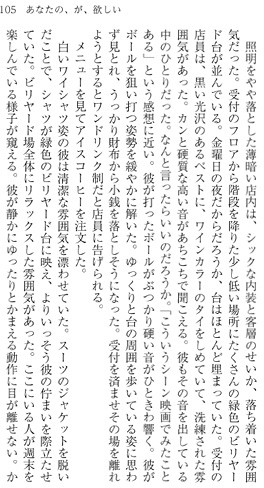 105 あなたの、が、欲しい
照明をやや落とした薄暗い店内は、シックな内装と客層のせいか、落ち着いた雰囲
気だった。受付のフロアから階段を降りた少し低い場所にたくさんの緑色のビリヤー
ド台が並んでいる。金曜日の夜だからだろうか、台はほとんど埋まっていた。受付の
店員は、黒い光沢のあるベストに、ワインカラーのタイをしめていて、洗練された雰
囲気があった。カンと硬質な高い音があちこちで聞こえる。彼もその音を出している
中のひとりだった。なんと言ったらいいのだろうか、「こういうシーン映画でみたこと
ある」という感想に近い。彼が打ったボールがぶつかり硬い音がひときわ響く。彼が
ボールを狙い打つ姿勢を緩やかに解いた。ゆっくりと台の周囲を歩いている姿に思わ
ず見とれ、うっかり財布から小銭を落としそうになった。受付を済ませその場を離れ
ようとするとワンドリンク制だと店員に告げられる。
メニューを見てアイスコーヒーを注文した。
白いワイシャツ姿の彼は清潔な雰囲気を漂わせていた。スーツのジャケットを脱い
だことで、シャツが緑色のビリヤード台に映え、よりいっそう彼の佇まいを際立たせ
ていた。ビリヤード場全体にリラックスした雰囲気があった。ここにいる人が週末を
楽しんでいる様子が窺える。彼が静かにゆったりとかまえる動作に目が離せない。か